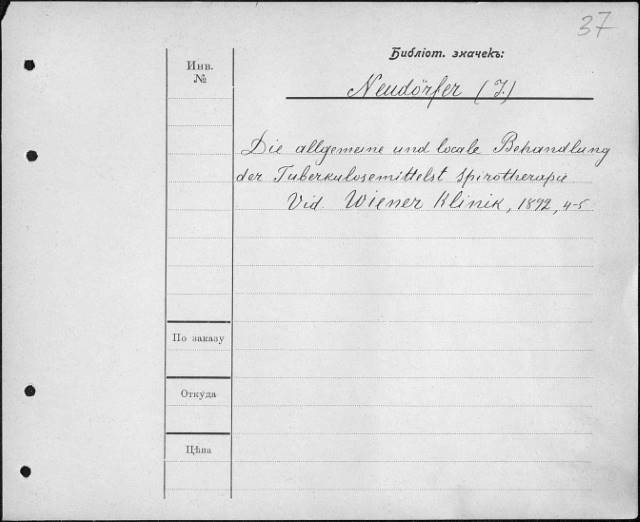 37
Библіот. значекъ:
Инв.
№
Neudörfer (J.)
Die allgemeine und locale Behandlung
der Tuberkulosemittelst spirotherapie
Vid. Wiener Klinik, 1892, 4-5
По заказу
Откуда
Цѣна